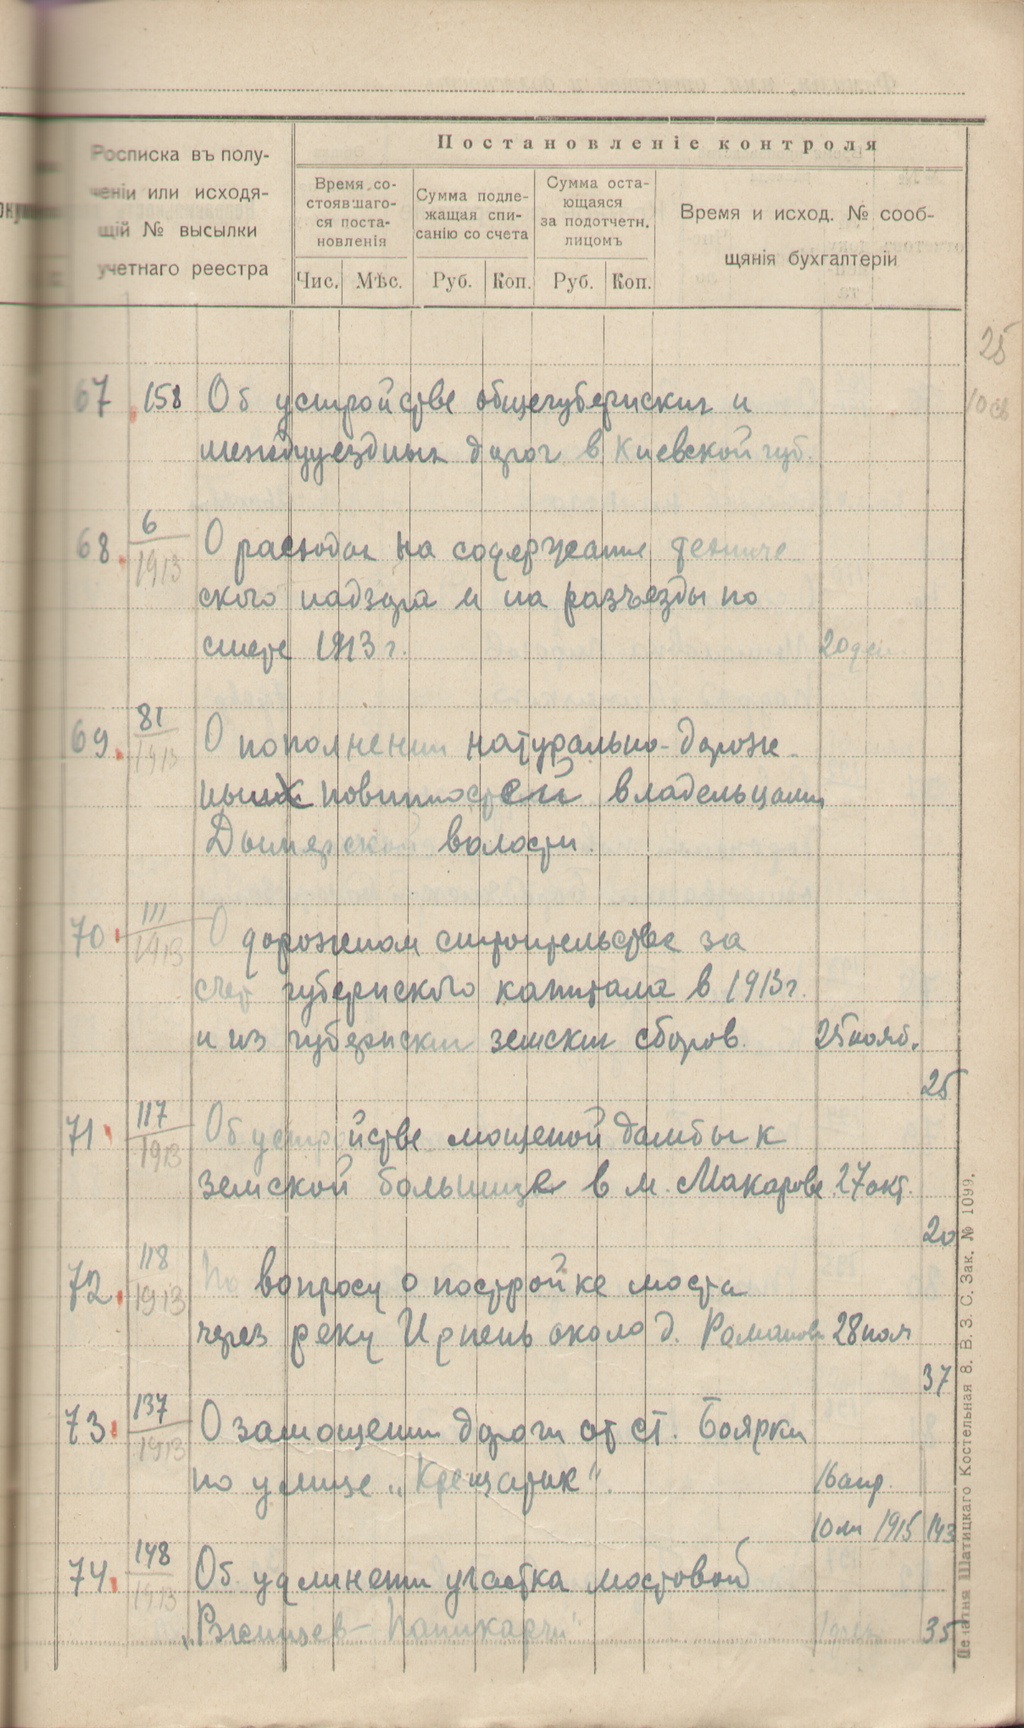 Росписка въ полу-
ченіи или исходя-
щій № высылки
учетнаго реестра
Постановленіе контроля
Время со-
стоявшаго-
ся поста-
новленія
Сумма подле-
жащая спи-
санію со счета
Сумма оста-
ющаяся
за подотчетн.
лицомъ
Время и исход. № сооб-
щянія бухгалтеріи
Чис. Мѣс. Руб. Коп. Руб. Коп.
25
67 158 Об устройстве общегубернских и
междууездных дорог в Киевской губ.
68. 6/1913 О расходах на содержание техниче
ского надзора и на разъезды по
смете 1913 г. 20 дек
69. 81/1913 О пополнении натурально-дорож-
ных повинностей владельцами
Дымерской волости.
70. 111/1913 О дорожном строительстве за
счет губернского капитала в 1913 г.
и из губернских земских сборов. 25 нояб.
25
71. 117/1913 Об устройстве мощеной дамбы к
земской больнице в м. Макарове. 27 окт.
20
72. 118/1913 По вопросу о постройке моста
через реку Ирпень около д. 28
37
73. 137/1913 О замощении дороги от ст. Боярки
по улице „Крещатик". 16 апр.
10 1915 143
74. 148/1913 Об удлинении участка мостовой
35
Печатня Шатицкаго Костельная 8. В. З. С. Зак. № 1099.